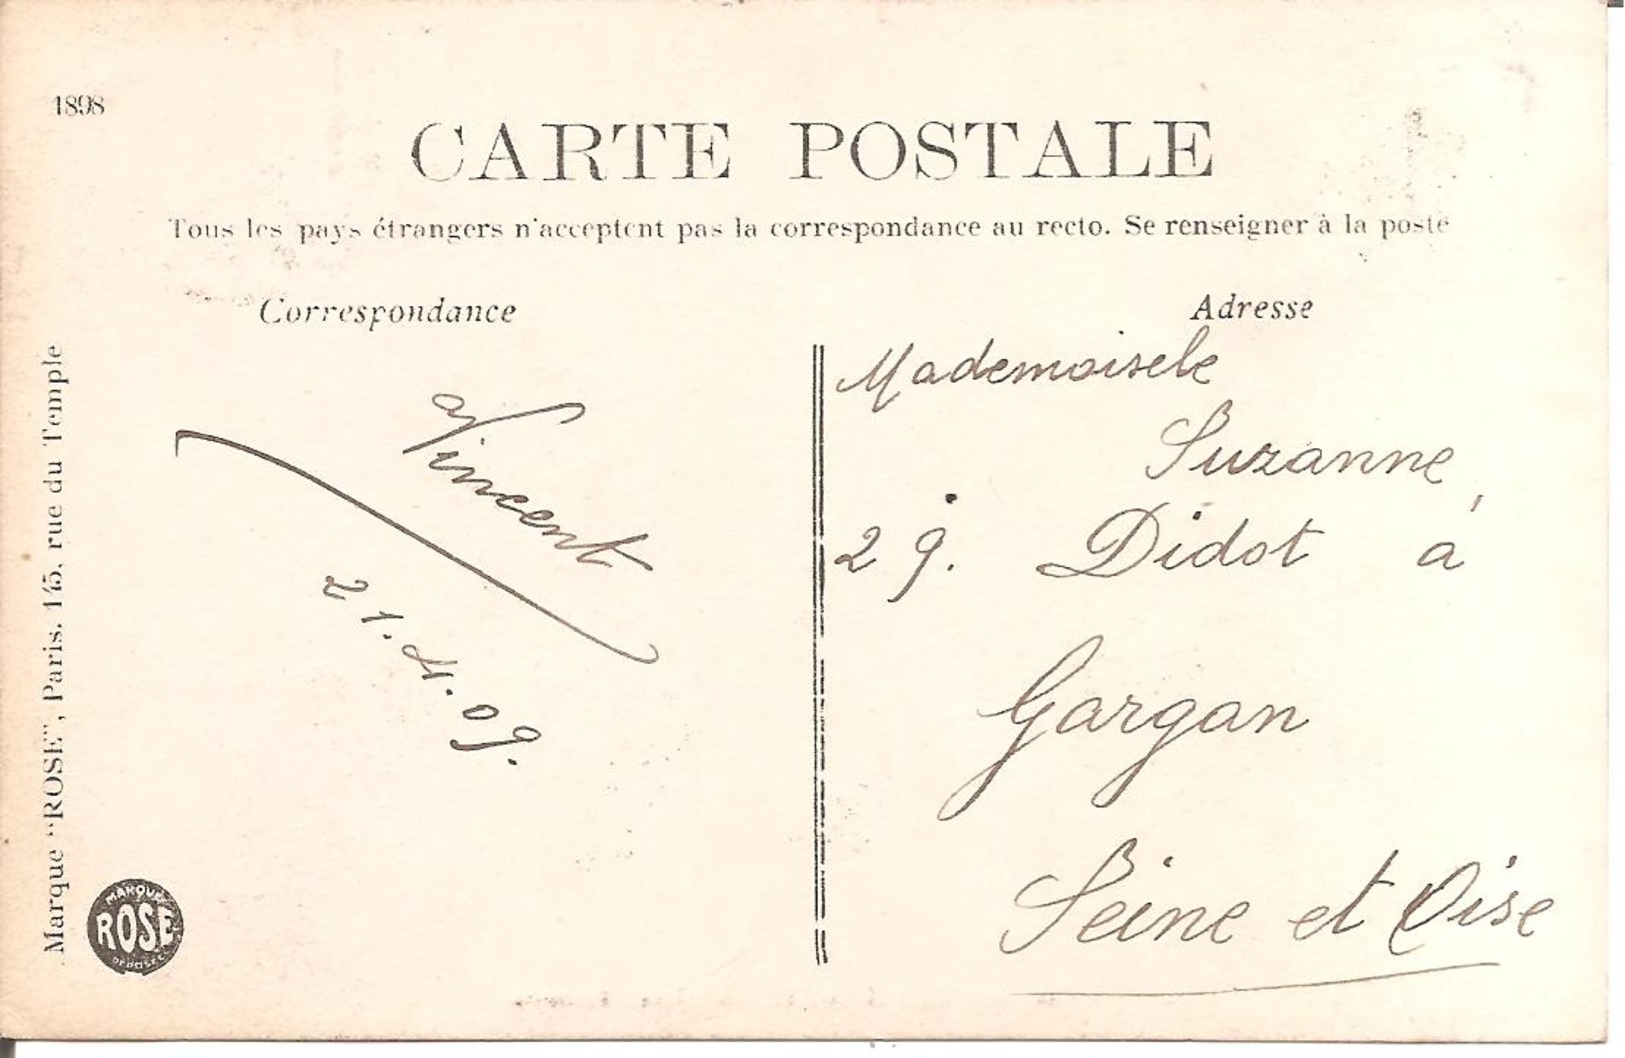 1898
CARTE POSTALE
Tous les pays étrangers n'acceptent pas la correspondance au recto. Se renseigner à la poste
Correspondance
Vincent
21.4.09.
Adresse
Mademoisele
Suzanne
29. Didot à
Gargan
Seine et Oise
Marque "ROSE", Paris. 145, rue du Temple
MARQUE
ROSE
DÉPOSÉE